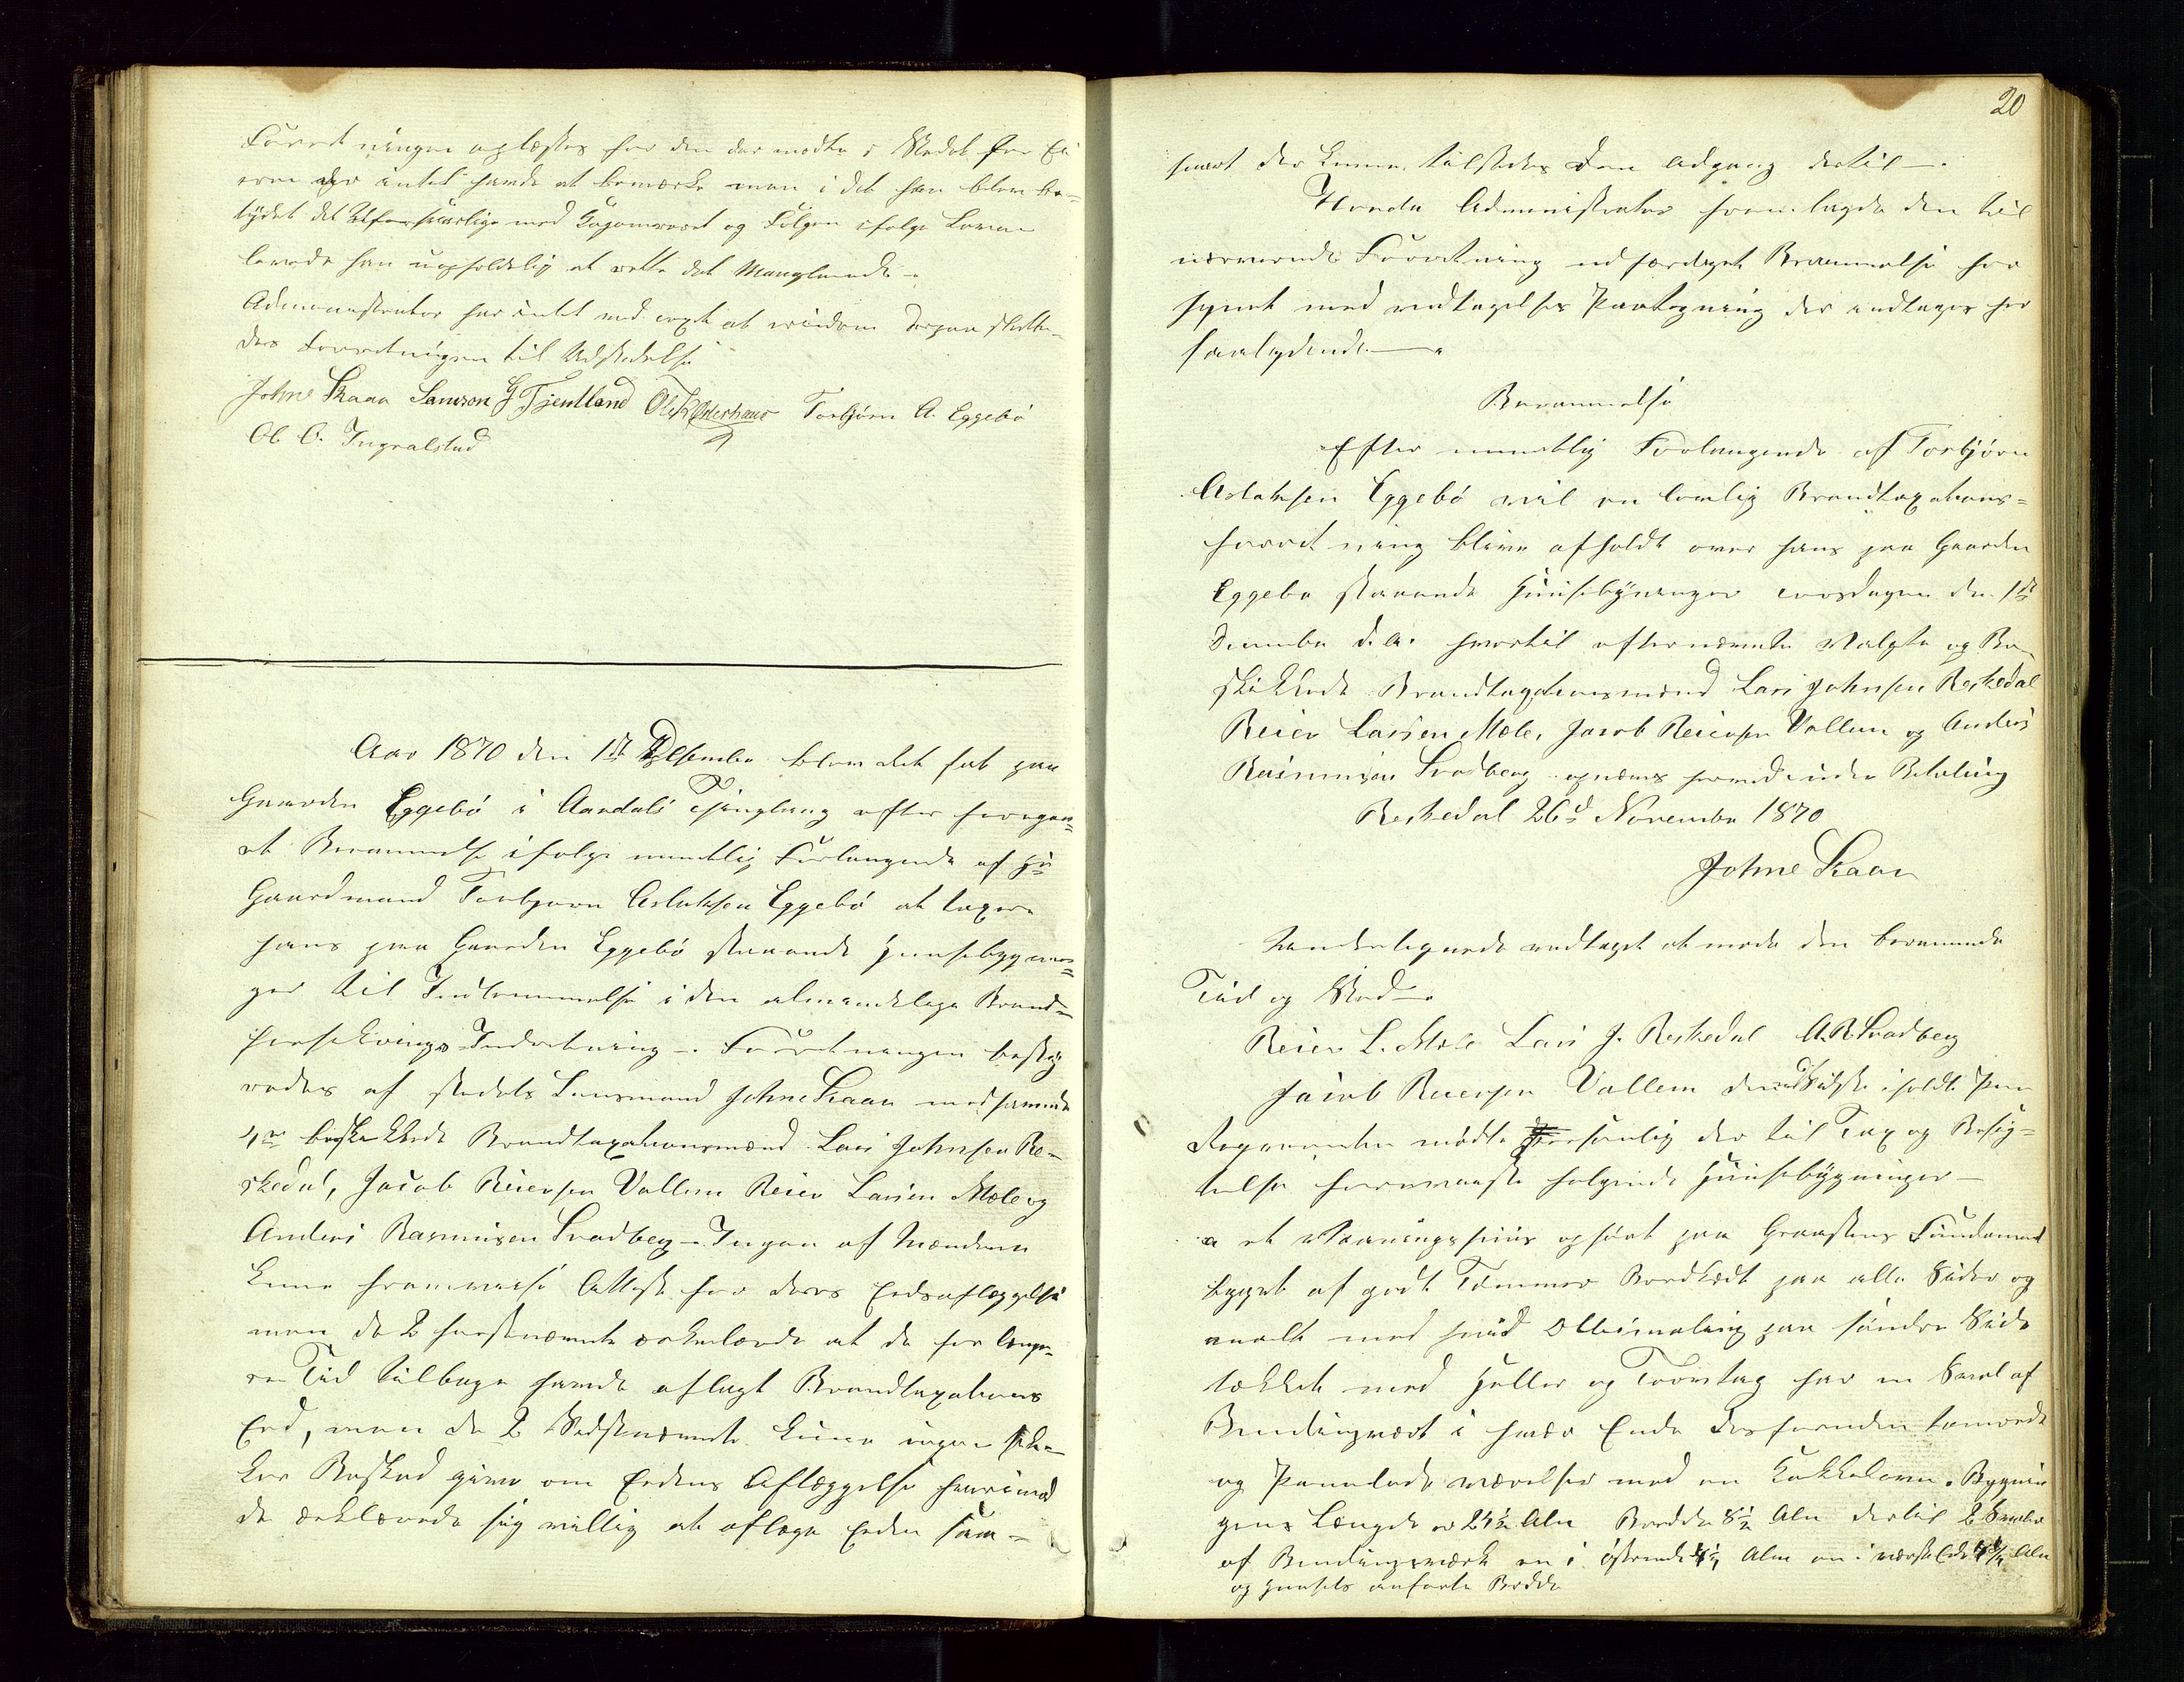 Forretningen oplæstes for den der mødte i Stedet for Ei
eren der intet havde at bemærke men i det han blev be-
tydet det Uforsvarlige med Gagnværet og Følgen ifølge Loven
lovede han uopholdelig at rette det Manglende.
Administrator har intet med videre Derpaa slutte-
des Forretningen til Udstedelse
Johne Skaar Samson G Tjentland Torbjørn A. Eggebø
Ol O. Ingvalstad
Aar 1870 den 1ste Desember blev Ret sat paa
Gaarden Eggebø i Aardals Thinglaug efter foregaa-
et Berammelse ifølge mundtlig Forlangende af
Gaardmand Torbjørn Aslaksen Eggebø at taxere
hans paa Gaarden Eggebø staaende Huusebygnin-
ger til Indlemmelse i den almindelige Brand-
forsikrings-Indretning. Forretningen besty
redes af stedets Lensmand Johne Skaar med samme
4re beskikkede Brandtaxationsmænd Lars Johnsen Re-
skedal, Jacob Reiersen Vallem Reier Larsen Mæle og
Anders Rasmusen Svadberg. Ingen af Mændene
kune fremvise Attest for deres Edsaflæggelse
men de 2 førstnævnte erkelærede at de for længe-
re Tid tilbage havde aflagt Brandtaxations
Eed, men de 2 Sidstnævnte kune ingen sik-
ker Beskeed give om Edens Aflæggelse hvorimod
de erklærede sig villig at aflæge Eden saa-
20
snart der kunne tilstedes dem Adgang dertil.
Herda Administrator fremlagde den til
nærværende Forretning udfærdiget Berammelse for
synet med vedtagelses Paategning der indtages her
saalydende.
Berammelse
Efter mundtlig Forlangende af Torbjørn
Aslaksen Eggebø vil en lovlig Brandtaxations-
forretning blive afholdt over hans paa Gaarden
Eggebø staaende Huusebygninger torsdagen den 1ste
Desember d. A. hvortil efternævnte Valgte og Be
skikkede Brandtaxationsmænd Lars Johnsen Reskedal
Reier Larsen Mæle, Jacob Reiersen Vallem og Anders
Rasmusen Svadberg opnævnes herved uden Betaling
Reskedal 26d November 1870
Johne Skaar
Undertegnede vedtaget at møde den berammede
Tid og Sted.
Reier L. Mæle Lars J. Reskedal A.R Svadberg
Jacob Reiersen Vallem med iholdt Pen
Reqvirenten mødte personlig der til Tax og Besig-
telse fremviiste følgende Huusebygninger
a et Vaaningshuus opført paa Graastens Fundament
bygget af godt Tømmer Bordklædt paa alle Sider og
malt med hvid Olliemaling paa søndre Side
tækket med Heller og Torvtag har en Sval af
Bindingværk i hver Ende desforuden tømrede
og Panelede værelser med en Kakkelovn. Bygnin
gens Længde er 24½ Alen Bredde 8½ Alen dertil 2 Svaler
af Bindingsværk en i østre ende 4½ Alen en i vestre Ende 4¼ Alen
og Huusets anførte Bredde